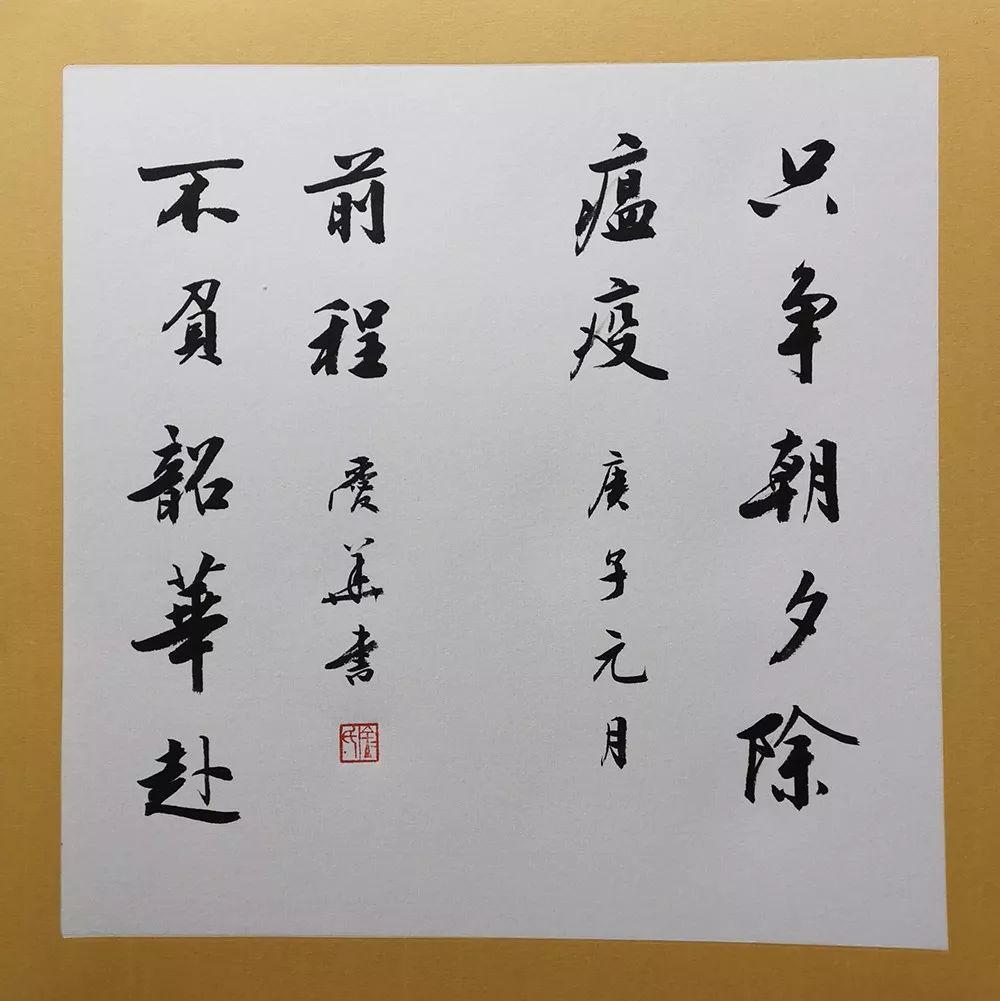 只争朝夕除
瘟疫 庚子元月
不負韶華赴
前程 華書
金氏